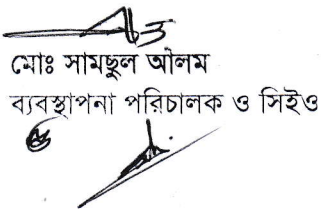 মোঃ সামছুল আলম
ব্যবস্থাপনা পরিচালক ও সিইও